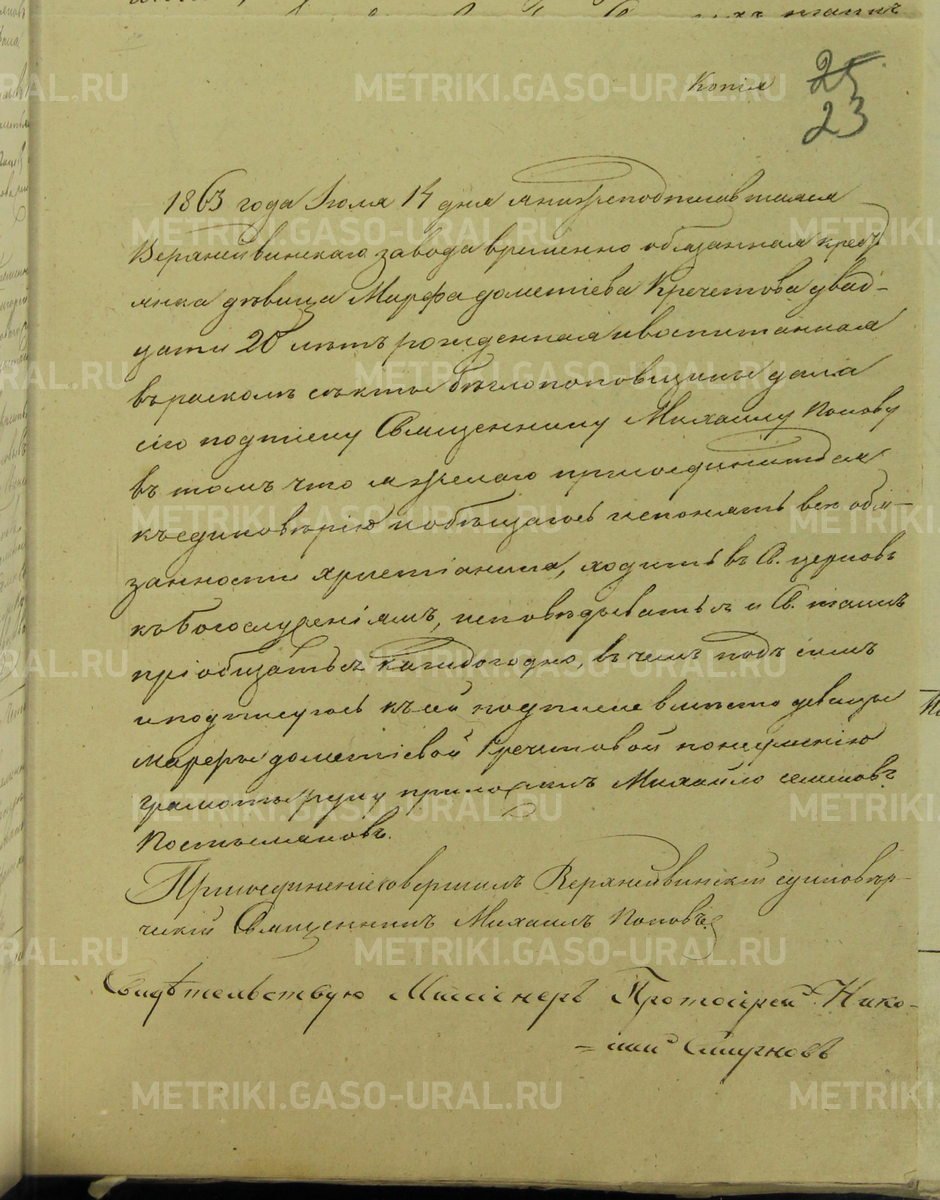 Копія
25
23
1863 года Іюля 14 дня я нижеподписавшаяся
Верхнейвинскаго завода временно обязанная кресть
янка дѣвица Марфа дометіева Кречетова двад-
цати 20 лѣтъ рожденная и воспитанная
въ расколѣ секты бѣглопоповщины дала
сію подписку Священнику Михаилу Попову
въ томъ что я желаю присоединиться
къ единовѣрію и обѣщаюсь исполнять всѣ обя-
занности христіанина, ходить въ Св. церковь
къ богослуженіямъ, исповѣдываться и Св. таинъ
пріобщаться каждогодно, въ чемъ подъ симъ
и подписуюсь къ сей подписке вместо девицы
Марфы дометіевой Кречетовой по неумѣнію
грамоты руку приложилъ Михайло семеновъ
Присоединеніе совершилъ Верхнейвинскій единовѣр-
ческій Священникъ Михаилъ Поповъ
Свидѣтельствую Миссіонеръ Протоіерей Нико-
= лай Смирновъ
METRIKI.GASO-URAL.RU